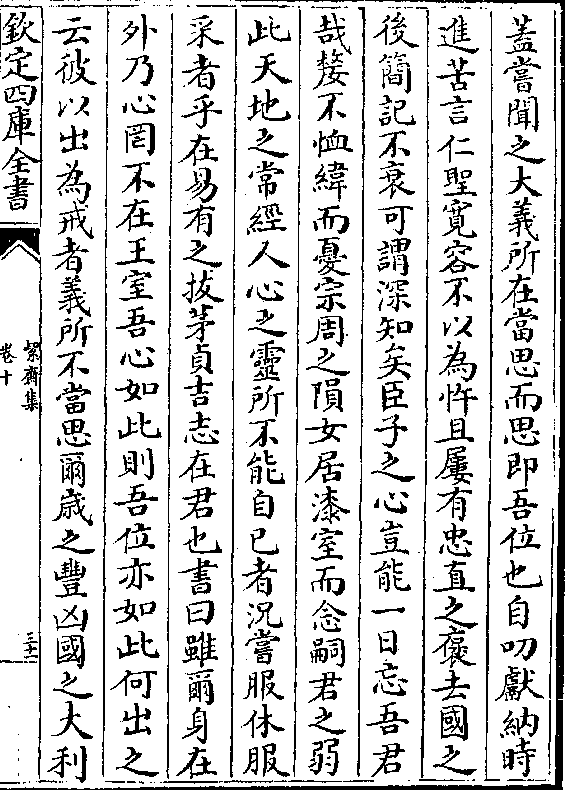 蓋嘗聞之大義所在當思而思即吾位也自叨獻納時
進苦言仁聖寛容不以為忤且屢有忠直之褒去國之
後簡記不衰可謂深知矣臣子之心豈能一日忘吾君
哉嫠不恤緯而憂宗周之隕女居漆室而念嗣君之弱
此天地之常經人心之靈所不能自已者況嘗服休服
采者乎在易有之拔茅貞吉志在君也書曰雖爾身在
外乃心罔不在王室吾心如此則吾位亦如此何出之
云彼以出為戒者義所不當思爾歳之豐凶國之大利
欽定四庫全書
絜齋集
卷十
三十一